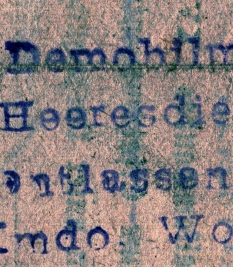 Demobilm
Heeresdie
entlassen
Imdo. Wo